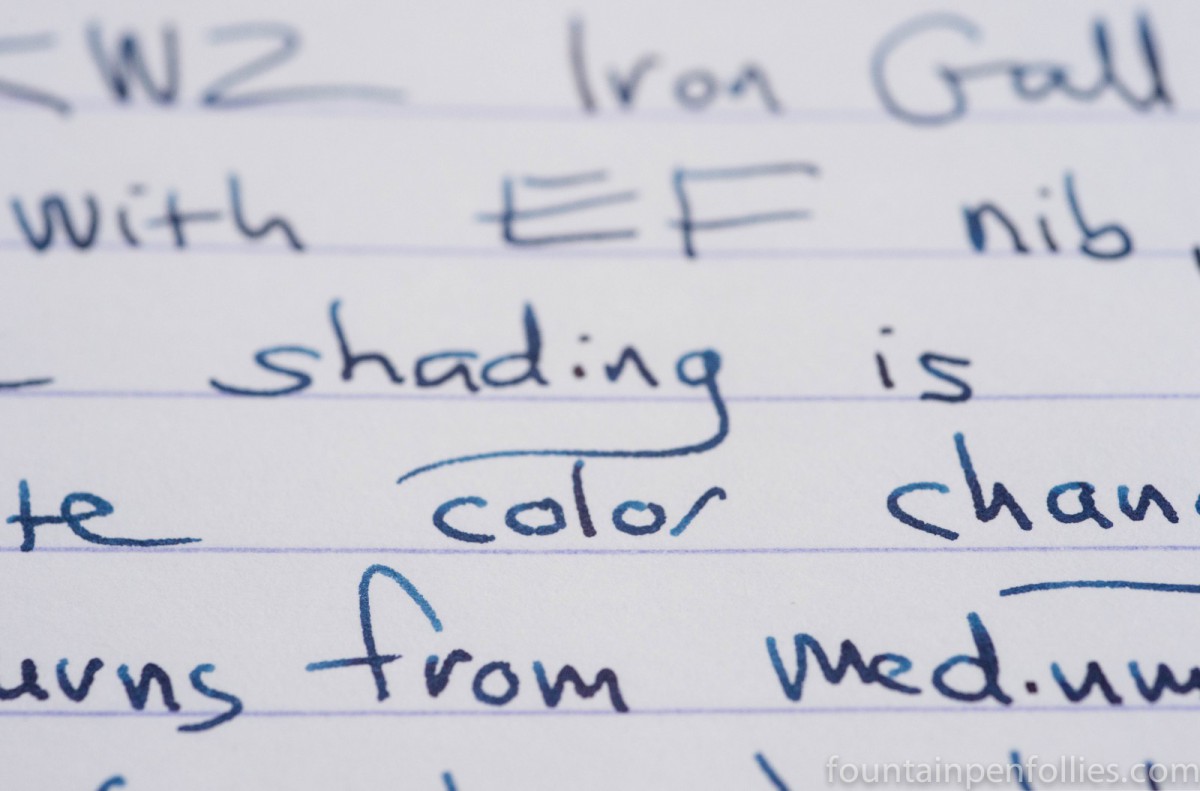 KWZ Iron Gall
with EF nib,
shading is
te color chan
urns from medium
fountainpenfollies.com